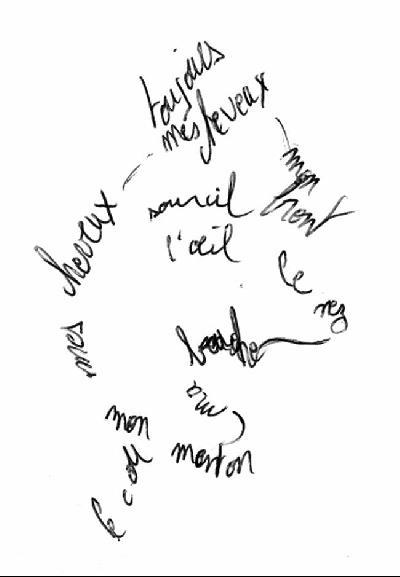 toujours
mes cheveux
mes cheveux
mon
front
sourcil
l'œil
le
nez
bouche
ma
mon
menton
le cou